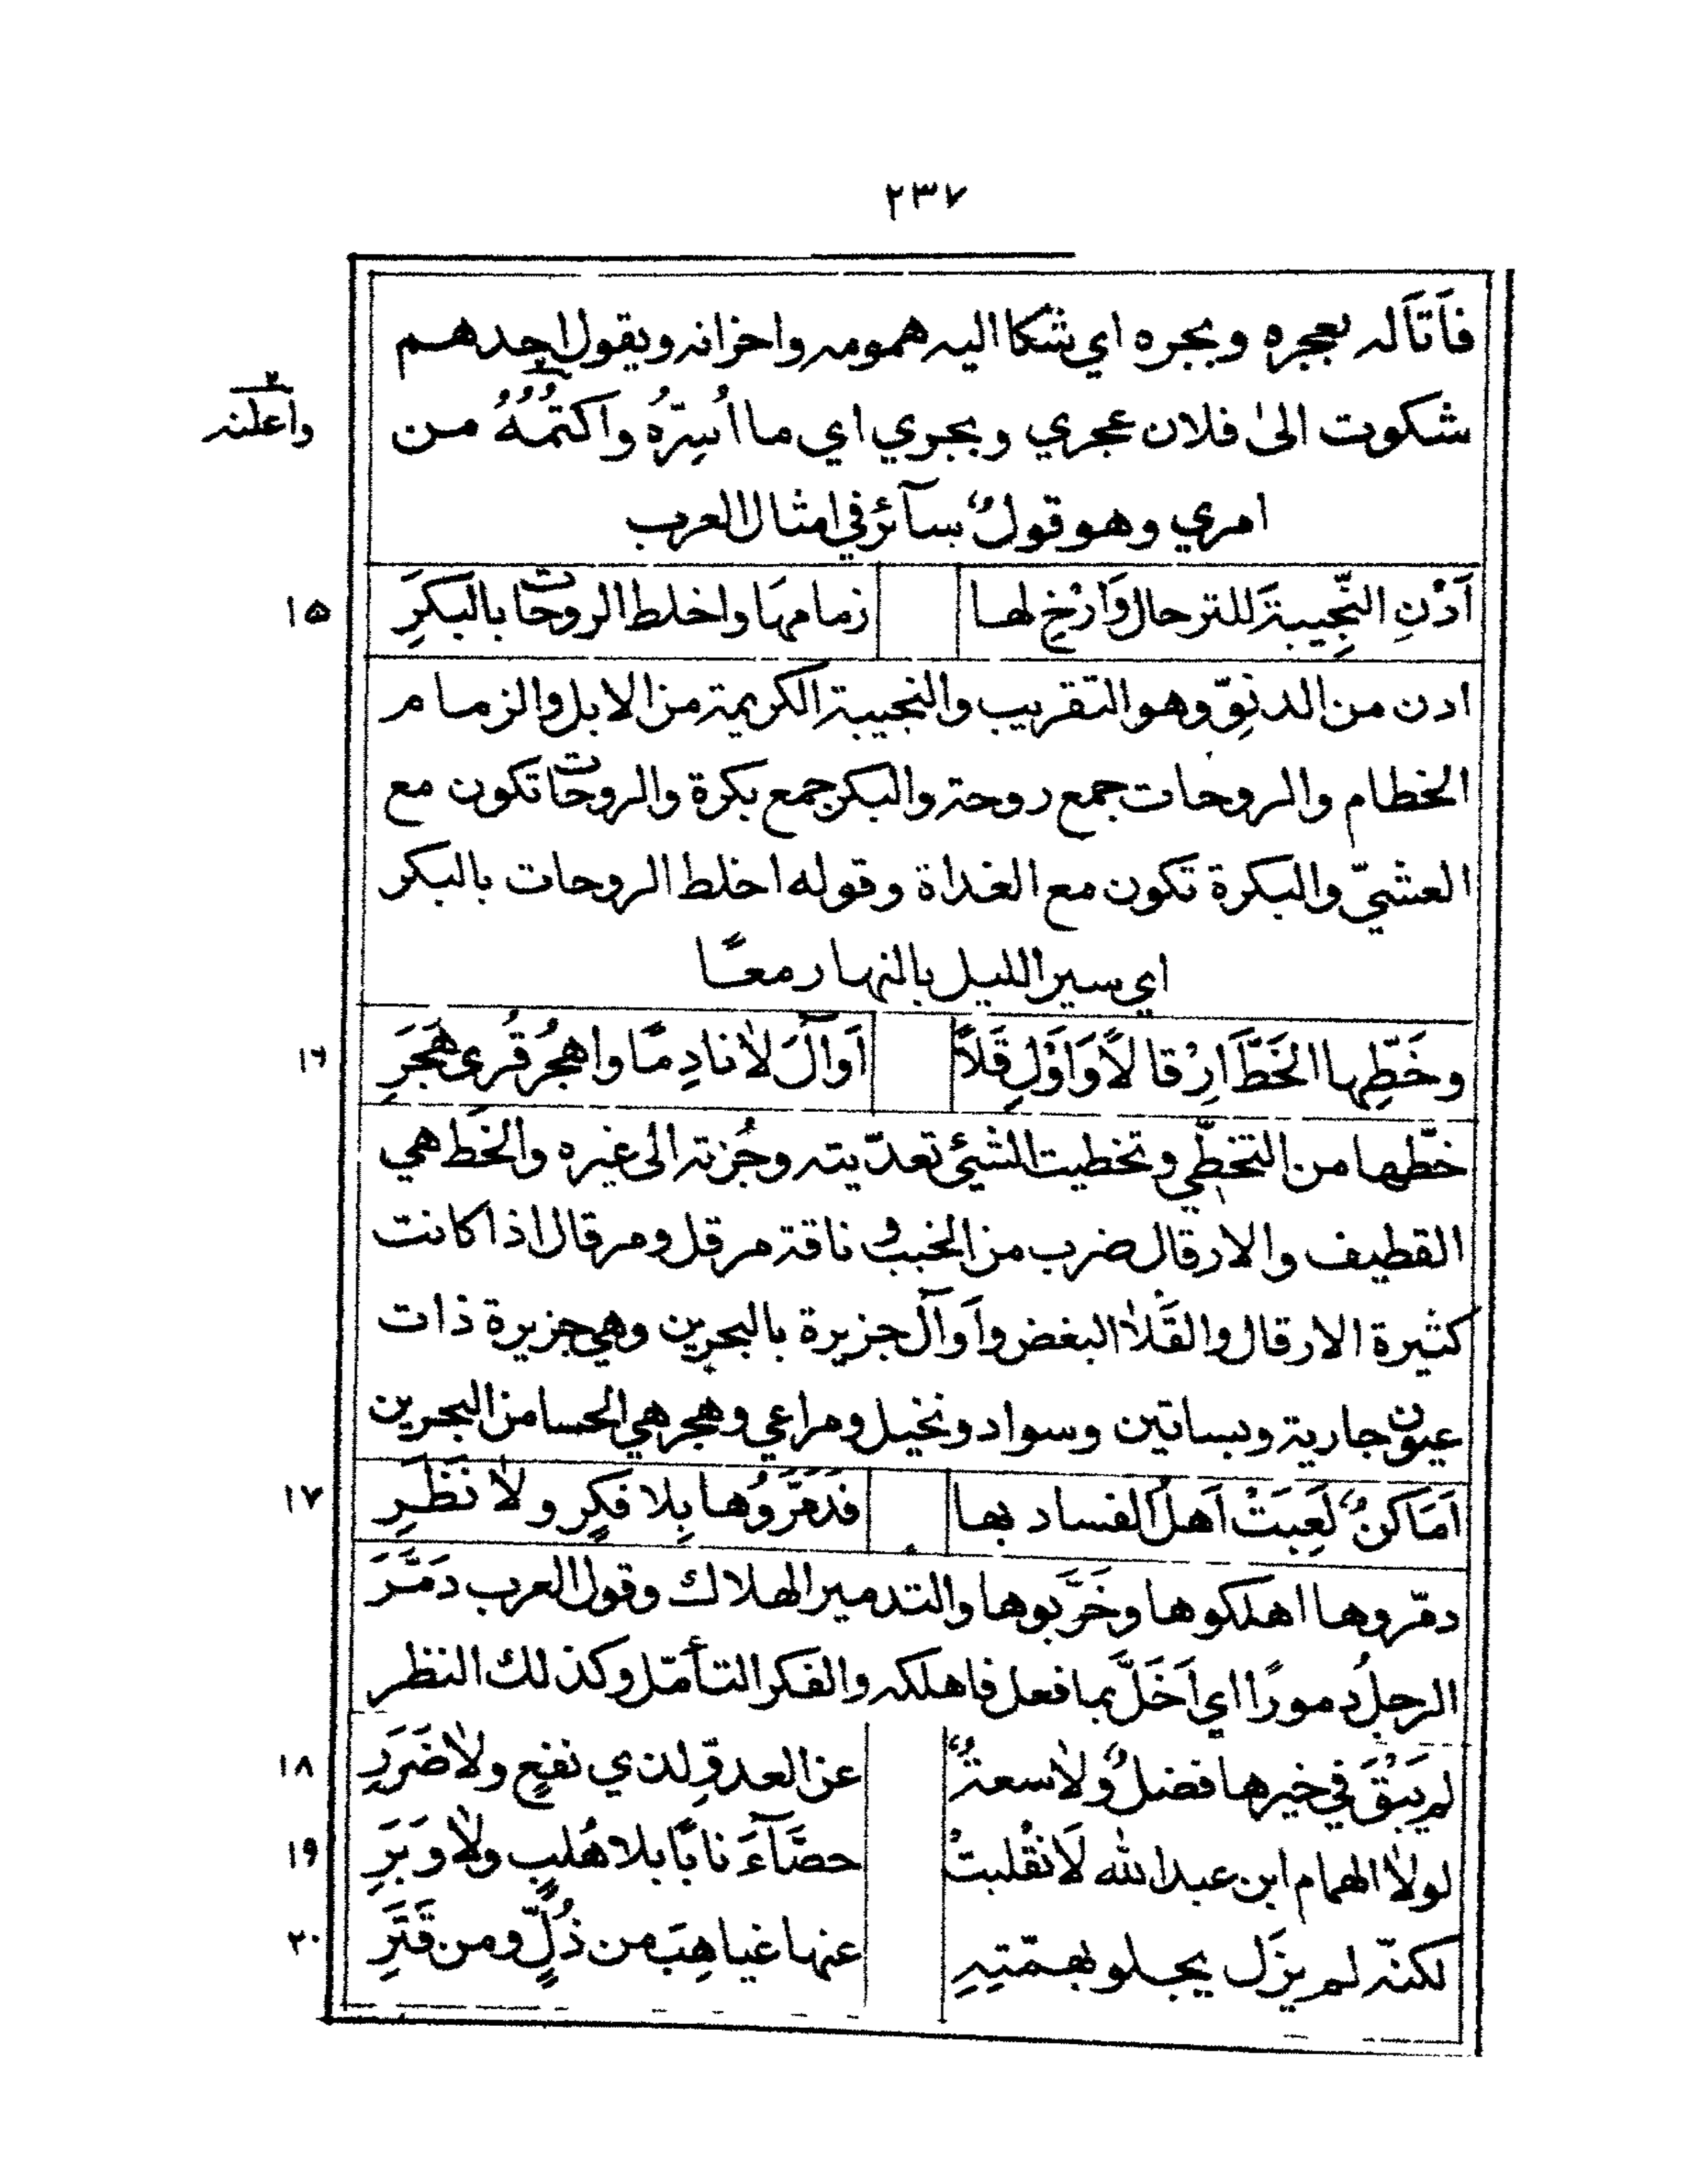 ٢٣٧
فَاَتَآله بعجره وبجره اي شكا اليه همومه واحزانه ويقول احدهم
شكوت الىٰ فلان عجري وبجري اي ما اُسِرّهُ واكتمُهُ من
واعلنه
امري وهو قولٌ سآئرٌ في امثال العرب
اَدْنِ النّجِيبةَ للترحال وَاَرْخِ لها زمامهَا واخلط الروحات بالبكَرِ ١٥
ادن من الدنوّ وهو التقريب والنجيبة الكريمة من الابل والزمام
الخطام والروحات جمع روحة والبكر جمع بكرة والروحات تكون مع
العشيّ والبكرة تكون مع الغداة وقوله اخلط الروحات بالبكر
اي سير الليل بالنهار معًا
وخَطِّها الخَطَّ اَرِرْقالاً وَاَوْلِ قَلاً اَوآلَ لاٰ نادِمًا واهجُرْ قُرى هَجَرِ ١٦
خطّها من التخطّي وتخطيت الشيئ تعدّيته وجُزته الى غيره والخَط هي
القطيف والارقال ضرب من الخبب و ناقة مرقل ومرقال اذا كانت
كثيرة الارقال والقَلاٰ البغض واَوآل جزيرة بالبحرين وهي جزيرة ذات
عيون جارية وبساتين وسواد ونخيل ومراعي وهجر هي الحسا من البحرين
اَمَاكنٌ لَعِبَتْ اَهلُ الفساد بها فدَمَّرَوُها بِلا فكِرٍ ولاٰ نَظَرِ ١٧
دمّروها اهلكوها وخَرَّبوها والتدمير الهلاك وقول العرب دَمَّرَ
الرجلُ دمورًا اي اَخَلَّ بما فعل فاهلكه والفكر التأمّل وكذلك النظر
لم يَبْقَ في خيرها فضلٌ ولاٰ سعةٌ عن العدوِّ لذي نفعٍ ولاٰ ضَرَرِ ١٨
لولاٰ الهمام ابن عبدالله لاَنقلبتْ حصَّآءَ نابًا بلا هُلبٍ ولاٰ وَبَرِ ١٩
لكنّه لم يزَل يجلو بهمّتِهِ عنها غياهِبَ من ذُلٍّ ومن قَتَرِ ٢٠